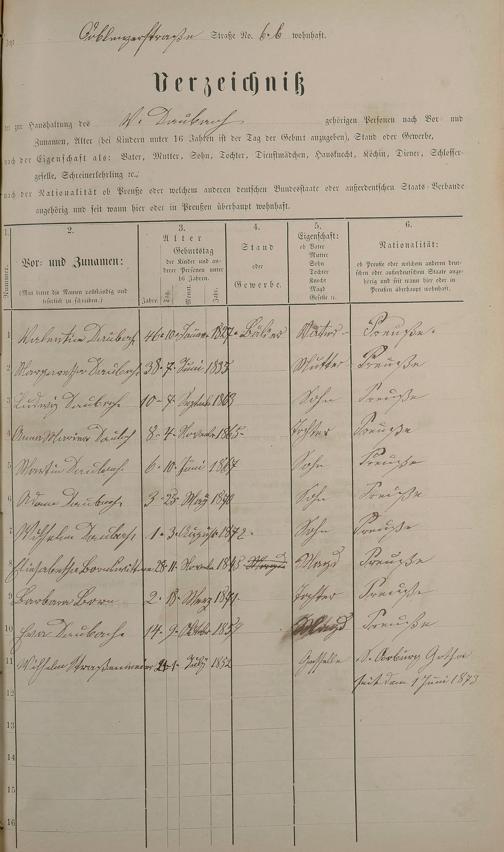 Coblenzerstraße Straße No. 6.b wohnhaft.
Verzeichniß
zur Haushaltung des V. Daubach gehörigen Personen nach Vor- und
Zunamen, Alter (bei Kindern unter 16 Jahren ist der Tag der Geburt anzugeben), Stand oder Gewerbe,
nach der Eigenschaft als: Vater, Mutter, Sohn, Tochter, Dienstmädchen, Hausknecht, Köchin, Diener, Schlosser-
geselle, Schreinerlehrling ec.,
nach der Nationalität ob Preuße oder welchem anderen deutschen Bundesstaate oder außerdeutschen Staats-Verbande
angehörig und seit wann hier oder in Preußen überhaupt wohnhaft.
1. 2. 3. 4. 5. 6.
Nummer. Vor- und Zunamen: Alter Stand oder Gewerbe. Eigenschaft: Nationalität:
Geburtstag der Kinder und anderer Personen unter 16 Jahren.
ob Vater Mutter Sohn Tochter Knecht Magd Geselle ec.
ob Preuße oder welchem anderen deutschen oder außerdeutschen Staate angehörig und seit wann hier oder in Preußen überhaupt wohnhaft.
(Man bittet die Namen vollständig und leserlich zu schreiben.)
Jahre. Tag. Monat. Jahr.
1 Valentin Daubach 46 10 Januar 1827 Vater Preuße
2 Margaretha Daubach 38 7 Juni 1835 Mutter Preuße
3 Ludwig Daubach 10 Sohn Preuße
4 Anna Maria Daubach 8 4 November 1865 Tochter Preuße
5 Martin Daubach 6 10 Juni 1867 Sohn Preuße
6 Adam Daubach 3 25 May 1870 Sohn Preuße
7 Wilhelm Daubach 1 3 August 1872 Sohn Preuße
8 Elisabetha Magd Preuße
9 Barbara Born 2 18 Merz 1871 Tochter Preuße
10 Eva Daubach 14 9 Oktober Magd Preuße
11 Wilhelm 1 July 1852 Geselle S. Coburg Gotha
seit dem 1 Juni 1873
12
13
14
15
16